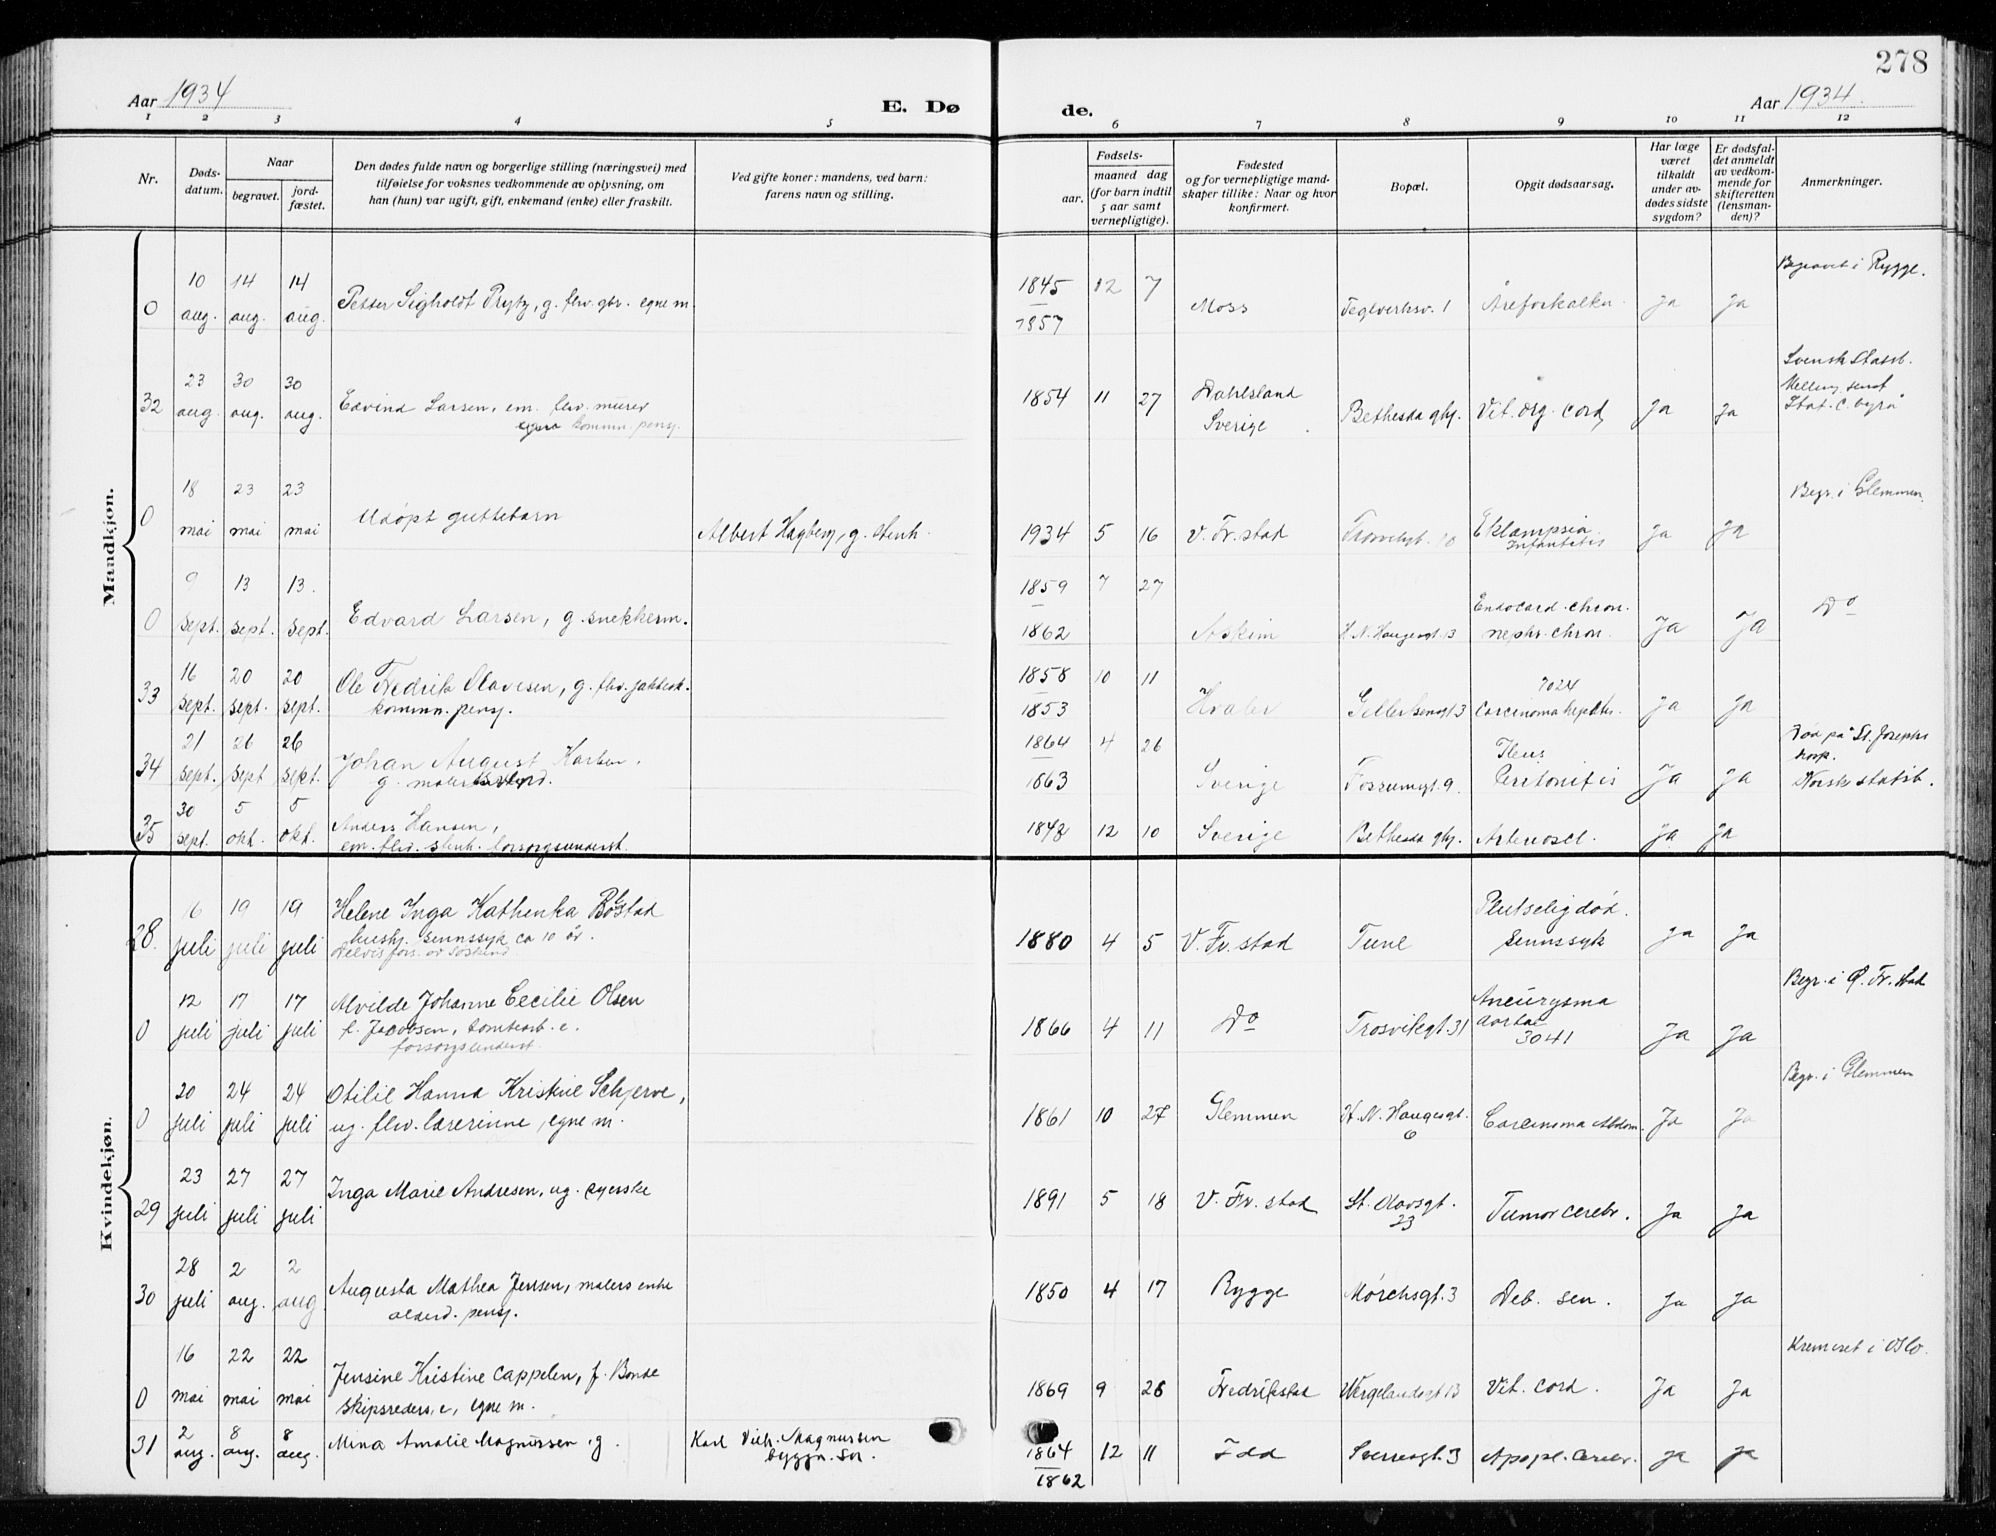 278
Aar 1934
E. Dø de.
Aar 1934.
1 2 3 4 5 6 7 8 9 10 11 12
Nr.
Døds-
datum.
Naar
begravet.
jord-
fæstet.
Den dødes fulde navn og borgerlige stilling (næringsvei) med
tilføielse for voksnes vedkommende av oplysning, om
han (hun) var ugift, gift, enkemand (enke) eller fraskilt.
Ved gifte koner: mandens, ved barn:
farens navn og stilling.
Fødsels-
aar.
maaned dag
(for barn indtil
5 aar samt
vernepligtige).
Fødested
og for vernepligtige mand-
skaper tillike: Naar og hvor
konfirmert.
Bopæl.
Opgit dødsaarsag.
Har læge
været
tilkaldt
under av-
dødes sidste
sygdom?
Er dødsfal-
det anmeldt
av vedkom-
mende for
skifteretten
(lensman-
den)?
Anmerkninger.
Mandkjøn.
Begravet i Rygge.
10 14 14 1845 12 7
0 aug. aug. aug. Petter Sigholdt Prytz, g. flrv. gbr. egne m. 1857 Moss Teglverksv. 1 Åreforkalkn. Ja Ja
Svensk statsb.
23 30 30
32 aug. aug. aug. Edvind Larsen, em. flrv. murer 1854 11 27 Dahlsland Bethesda ghj. Vit. org. cord. Ja Ja Stat. C. byrå
komm. pensj. Sverige
18 23 23 Begr. i Glemmen.
0 mai mai mai Udøpt guttebarn Albert Hagberg, g. stenh. 1934 5 16 V. Fr.stad Trosvikgt. 10 Eklampsia Ja Ja
Infantitis
9 13 13. 1859 7 27 Endocard. chron. Do
0 sept. sept. sept. Edvard Larsen, g. snekkerm. 1862 Askim H. N. Haugesgt. 13 nephr. chron. Ja Ja
16 20 20 1858 10 11 7024
33 sept. sept. sept. Ole Fredrik Olavesen, g. flrv. 1853 Hvaler 3 Carcinoma hepatis. Ja Ja
komm. pensj.
21 26 26 1864 4 26 Ileus Død på St. Josephs
hosp.
34 sept. sept sept. Johan August Karlsen, 1863 Sverige Fossumgt. 9. Peritonitis Ja Ja Norsk statsb.
g.
30 5 5
35 sept. okt. okt. Anders Hansen, 1848 12 10 Sverige Bethesda ghj. Arterioscl. Ja Ja
em. flrv. stenh. forsorgsunderst.
Kvindekjøn.
16 19 19 Helene Inga Kathenka Bøgstad Plutselig død.
28. juli juli juli hush. sinnssyk ca 10 år. 1880 4 5 V. Fr. stad Tune sinnssyk Ja Ja
Delvis fors. av søskend
12 17 17 Alvilde Johanne Cecilie Olsen Aneurysma Begr. i Ø. Fr. stad
0 juli juli juli f. Jacobsen, tomtearb. e. 1866 4 11 Do Trosvikgt. 31 aortae Ja Ja
forsorgsunderst. 3041
20 24 24 Otilie Hanna Kristine Schjerve, Begr. i Glemmen
0 juli juli juli ug. flrv. lærerinne, egne m. 1861 10 27 Glemmen H. N. Haugesgt. 6 Carcinoma Abdom. Ja Ja
23 27 27
29 juli juli juli Inga Marie Andresen, ug. syerske 1891 5 18 V. Fr. stad St. Olavsgt. 23 Tumor cerebr. Ja Ja
28 2 2
30 juli aug. aug Augusta Mathea Jensen, malers enke 1850 4 17 Rygge Mørchsgt. 3 Deb. sen. Ja Ja
alderd. pensj.
16 22 22 Kremeret i Oslo.
0 mai mai mai Jensine Kristine Cappelen, f. Bonde 1869 9 26 Fredrikstad Wergelandsgt 13 Vit. cord. Ja Ja
skipsreders, e, egne m.
2 8 8
31 aug. aug. aug. Mina Amalie Magnussen, g. Karl Vilh. Magnussen 1864 12 11 Idd Sverresgt. 3 Apopl. cerebr. Ja Ja
1862